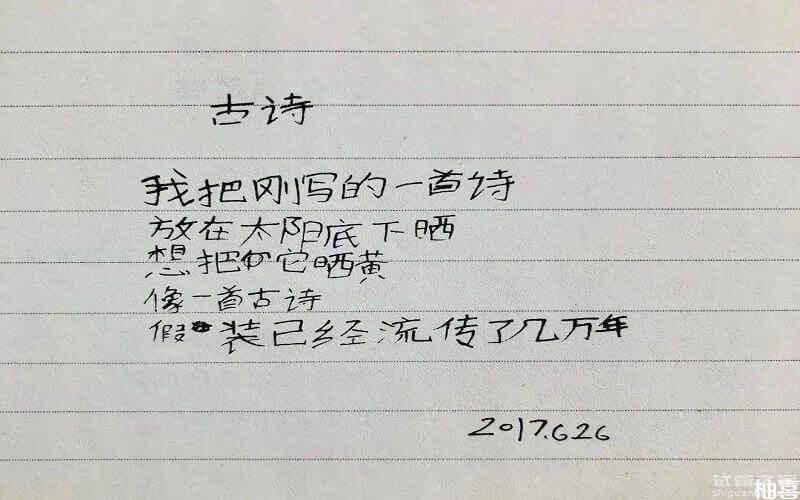 古诗
我把刚写的一首诗
放在太阳底下晒
想把它晒黄
像一首古诗
假装已经流传了几万年
2017.6.26
柚喜